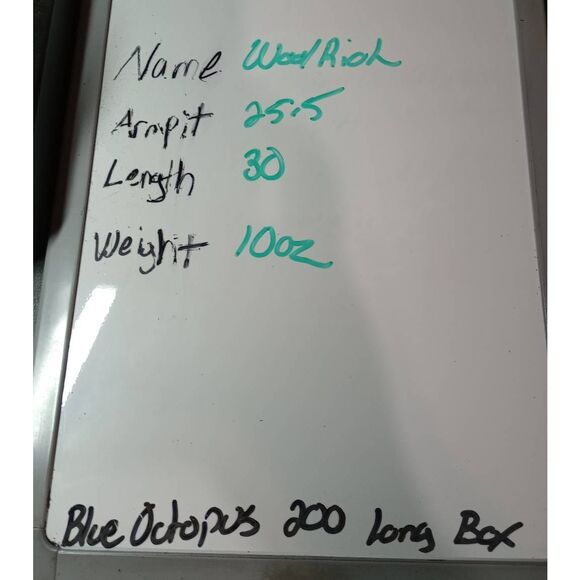 Name WoolRich
Armpit 25.5
Length 30
Weight 10oz
Blue Octopus 200 Long Box